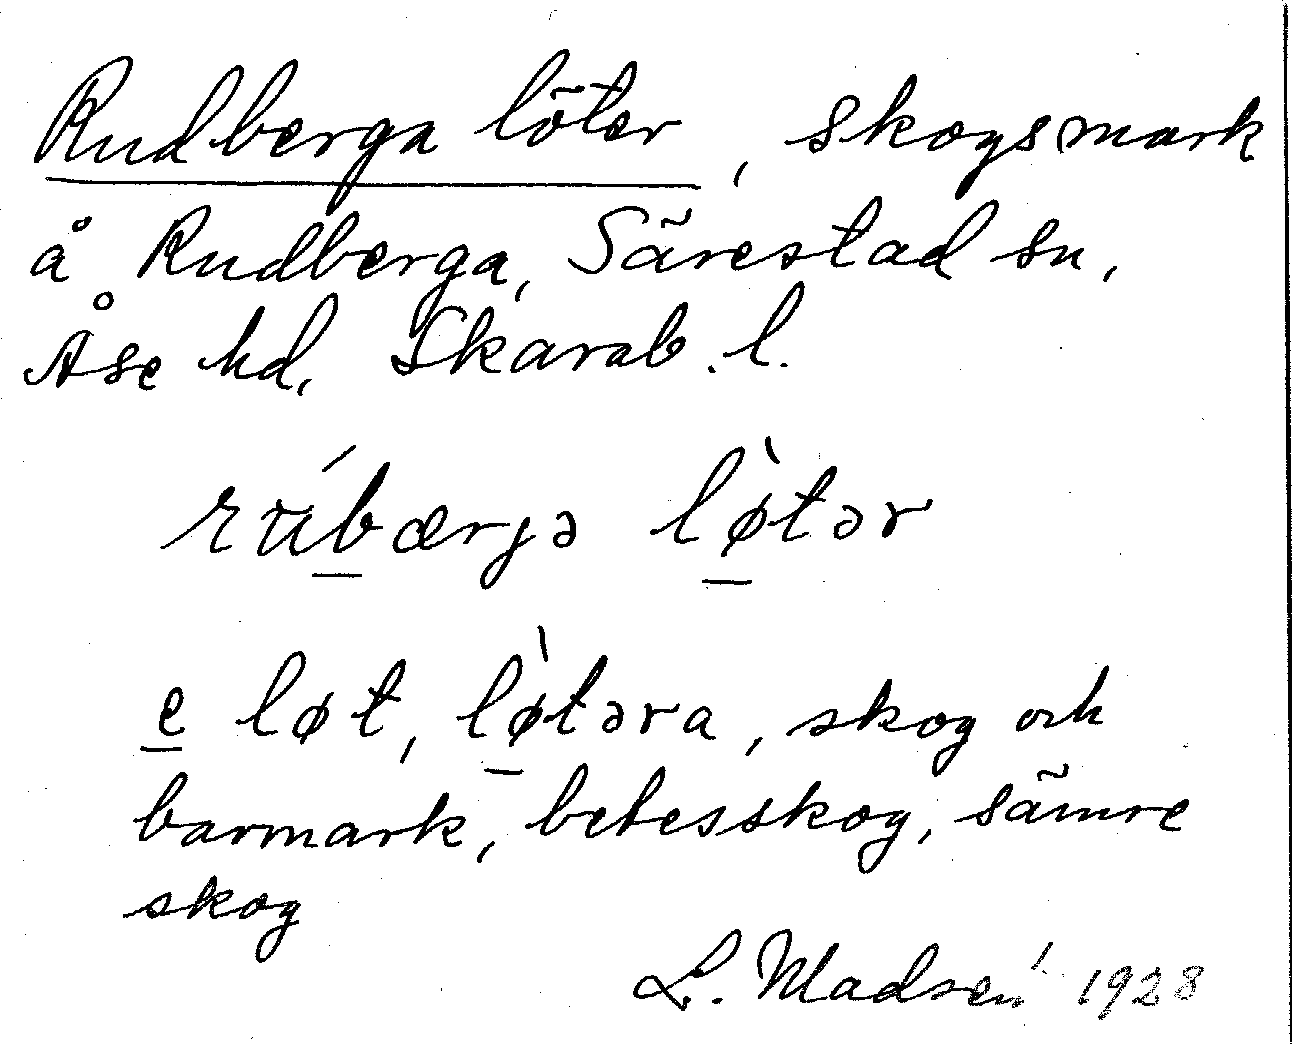 Rudberga löter, skogsmark
å Rudberga, Särestad sn,
Åse hd, Skarab. l.
rúbærjə lø̀tər
e løt, lø̀təra, skog och
barmark, betesskog, sämre
skog
L. Madsén 1928